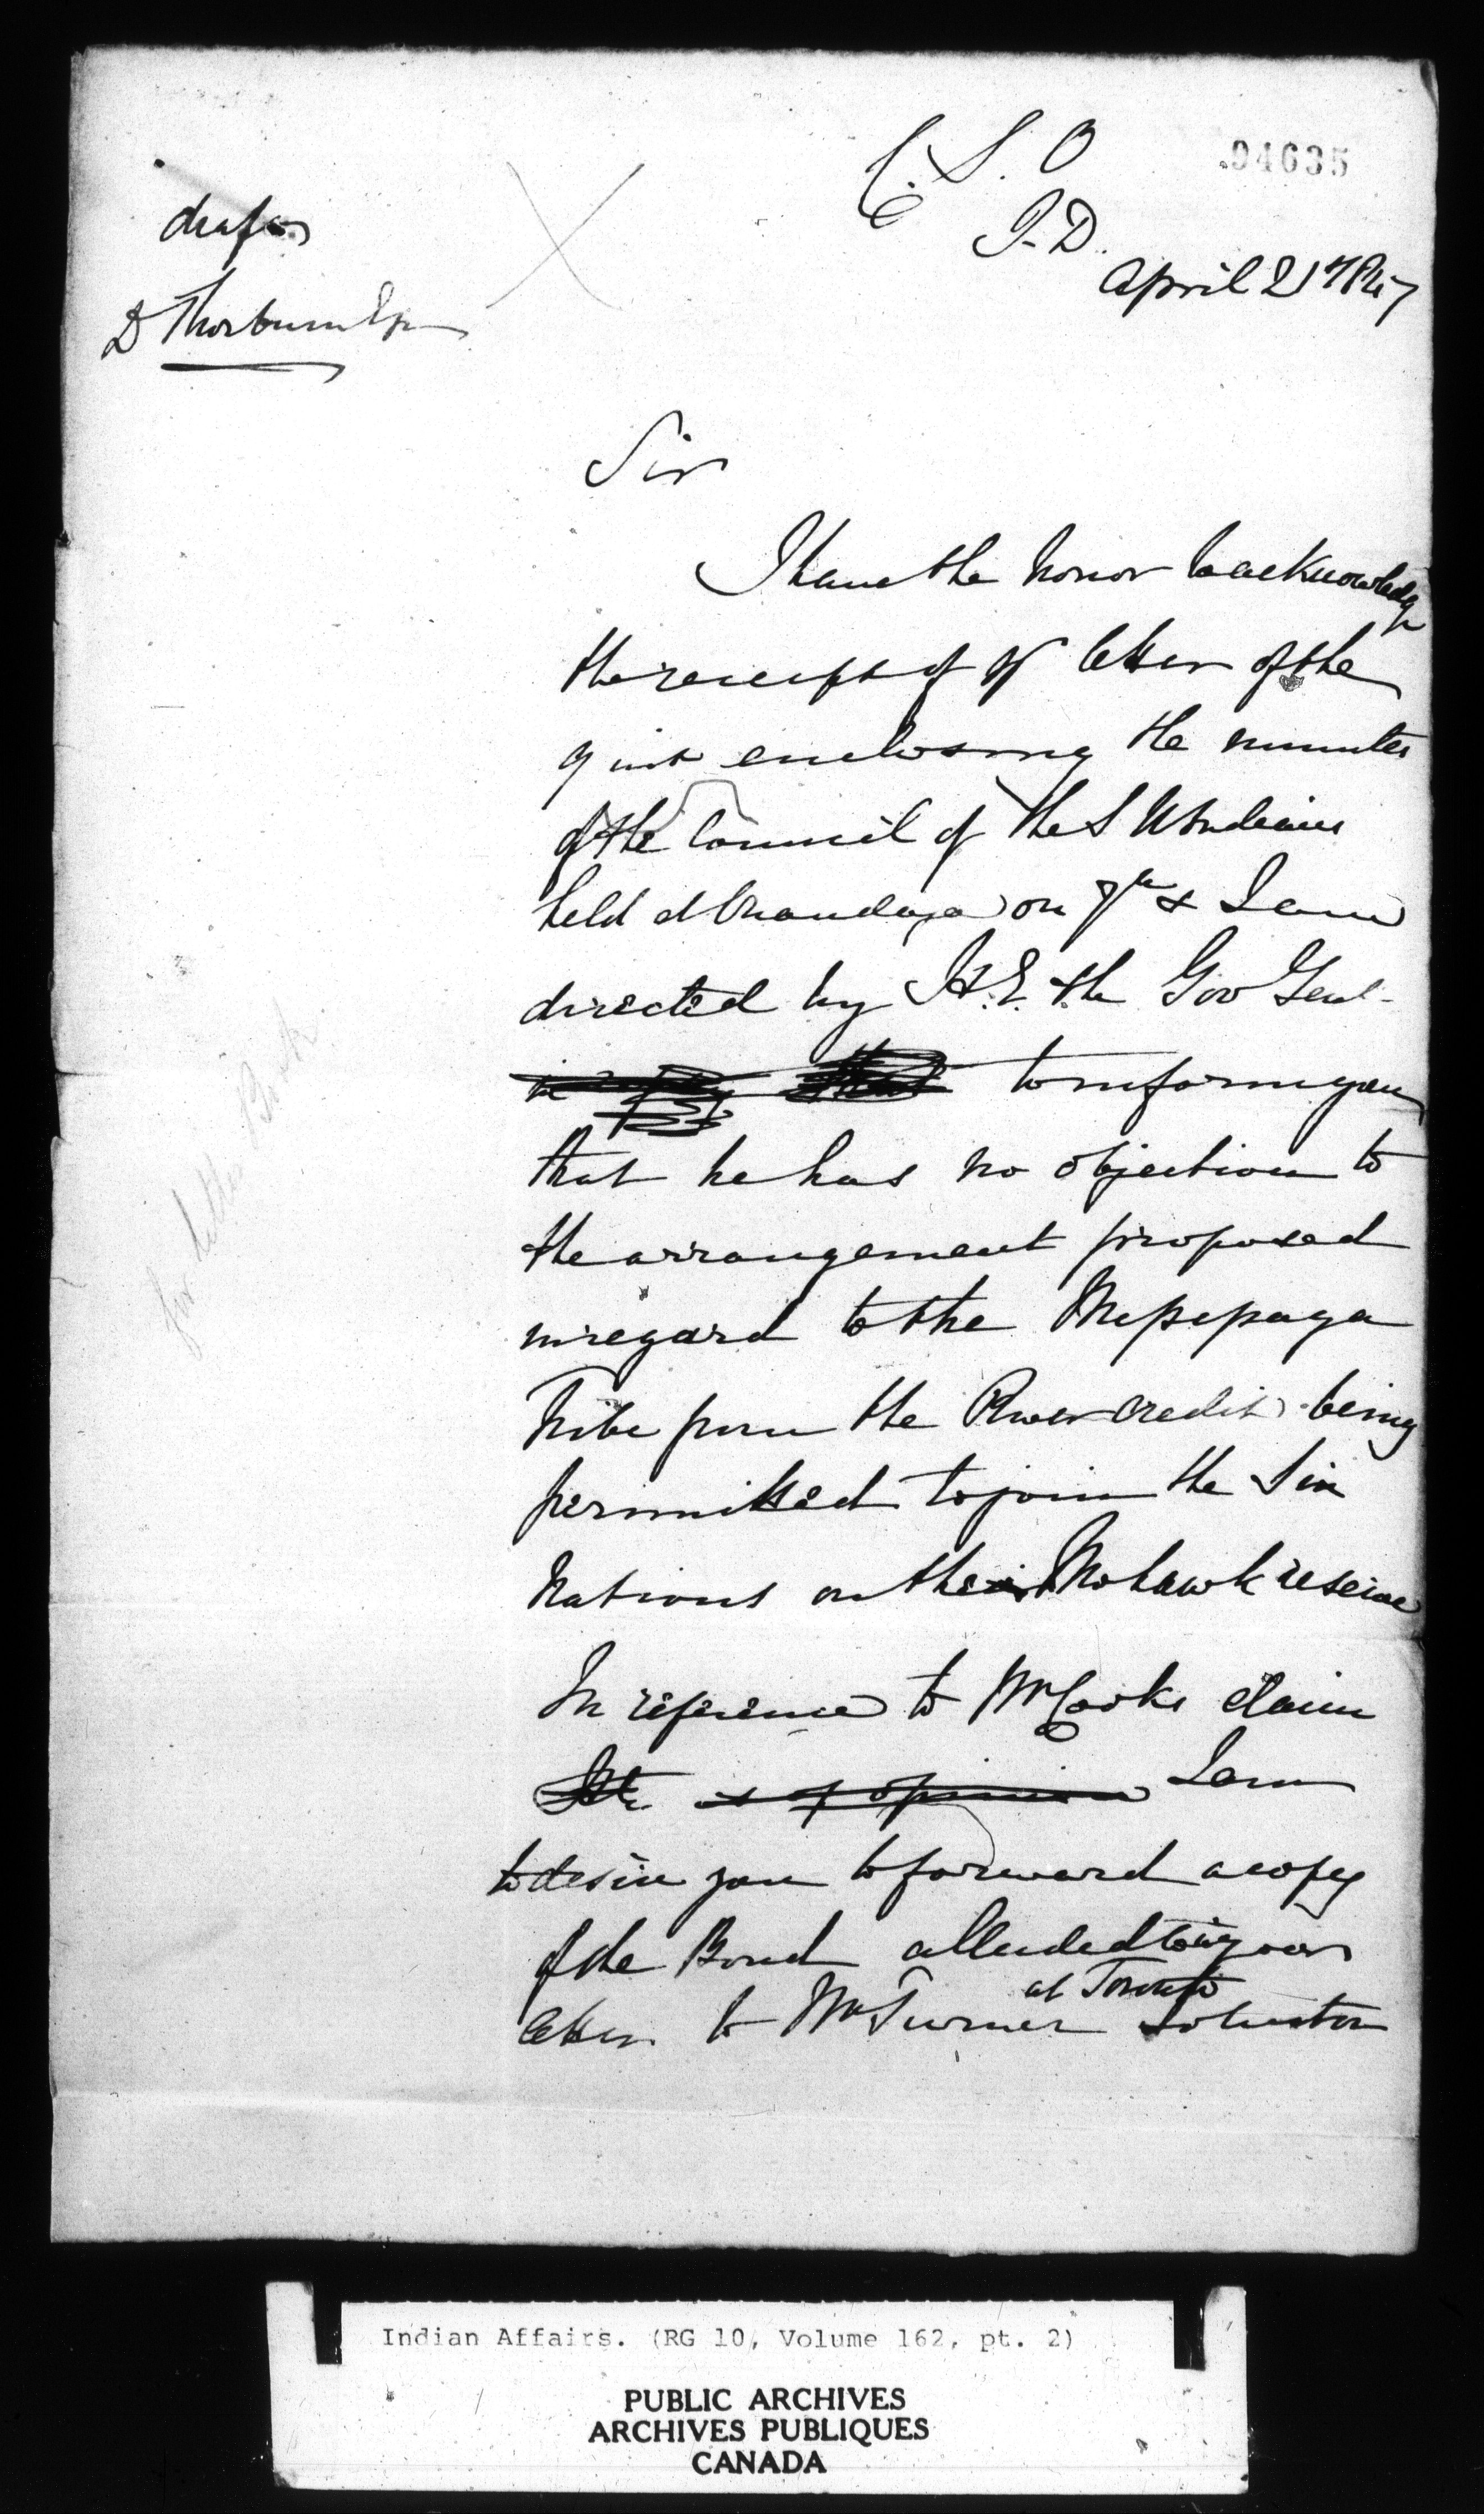 C. S. O
94635
I. D.
April 21st 1847
draft
D Thorburn Esqr
Sir
I have the honor to acknowledge
the receipt of yr letter of the
9 inst enclosing the minutes
of the Council of the S N Indians
held at Onandaga on 7th & I am
directed by H. E. the Gov Genl
to inform you
that he has no objection to
the arrangement proposed
in regard to the Missisaga
Tribe from the River Credit being
permitted to join the Six
Nations on the Mohawk reserve
In reference to Mr Cooks claim
He is of opinion I am
to desire you to forward a copy
of the Bond alluded to in your
at Toronto
letter to Mr Turner Solicitor
for Letter Book
Indian Affairs. (RG 10, Volume 162, pt. 2)
PUBLIC ARCHIVES
ARCHIVES PUBLIQUES
CANADA